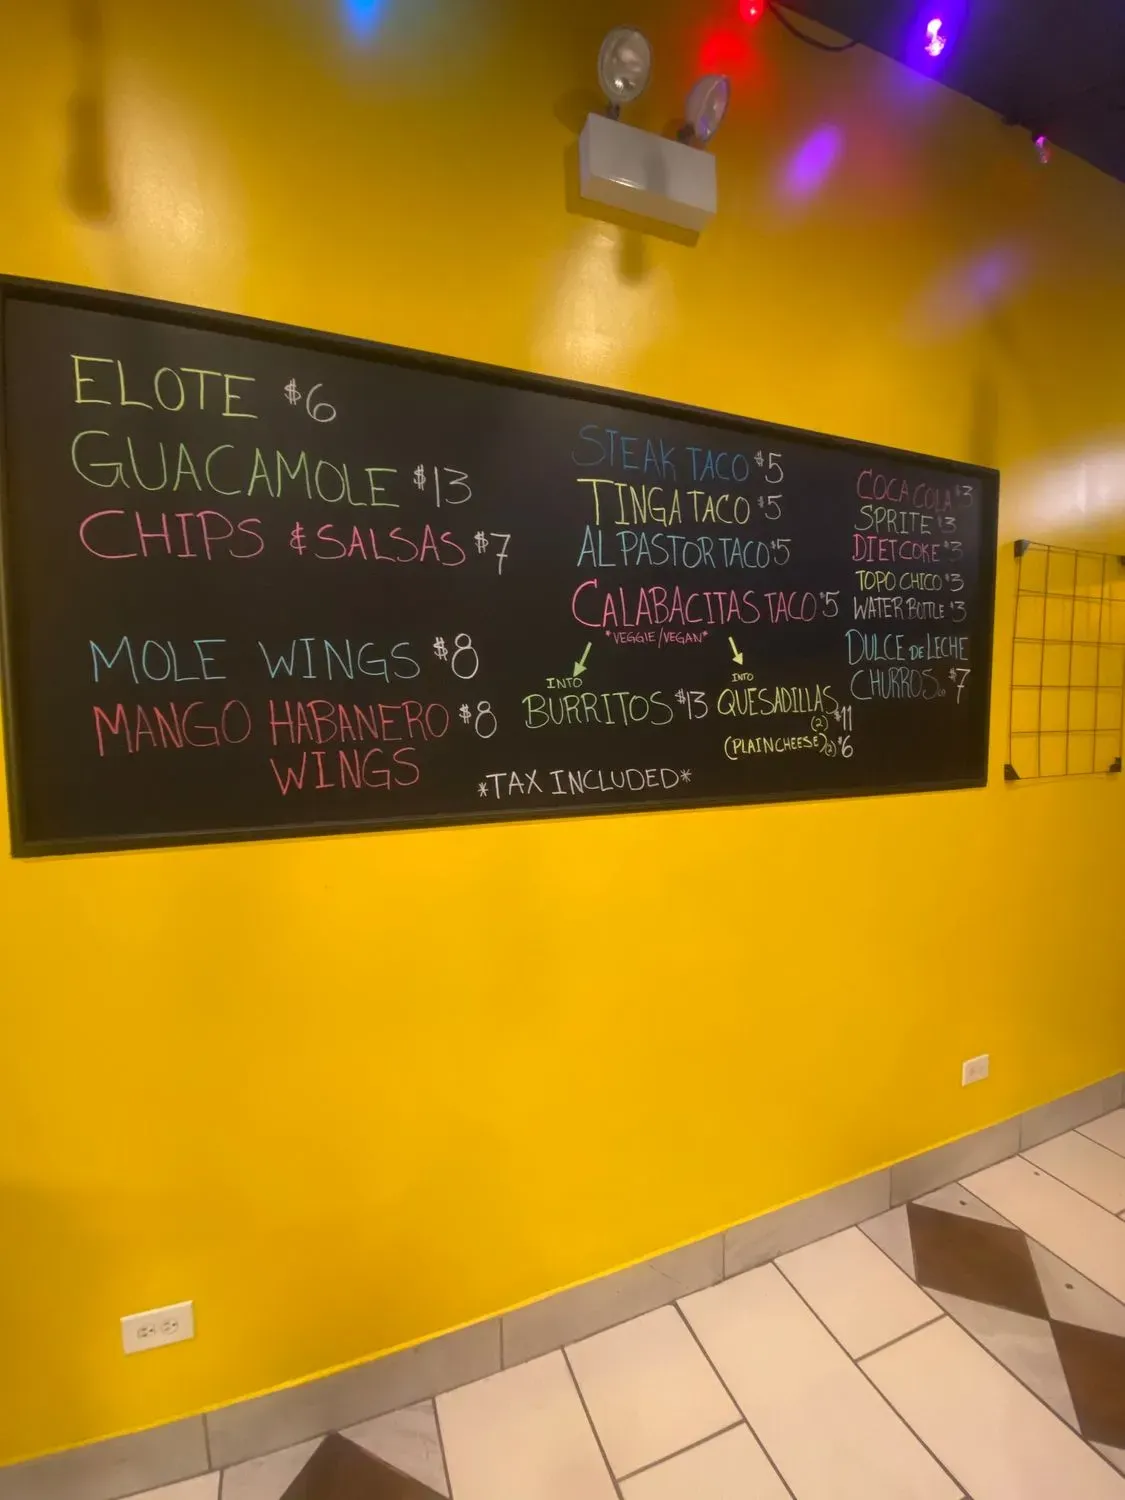 ELOTE $6
GUACAMOLE $13
CHIPS & SALSAS $7
MOLE WINGS $8
MANGO HABANERO $8
WINGS
STEAK TACO $5
TINGA TACO $5
AL PASTOR TACO $5
CALABACITAS TACO $5
*VEGGIE/VEGAN*
INTO
BURRITOS $13
INTO
QUESADILLAS
(2) $11
(PLAIN CHEESE)(2) $6
*TAX INCLUDED*
COCA COLA $3
SPRITE $3
DIET COKE $3
TOPO CHICO $3
WATER BOTTLE $3
DULCE DE LECHE
CHURROS $7